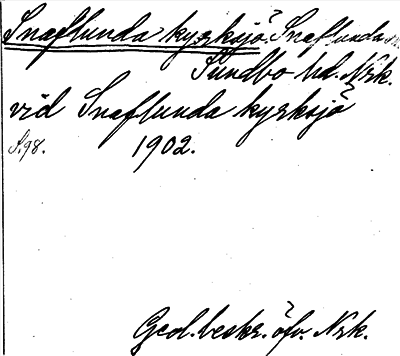 Snaflunda kyrksjö Snaflunda
Sundbo hd. Nrk.
vid Snaflunda kyrksjö
S.98. 1902.
Geol. beskr. öfv. Nrk.